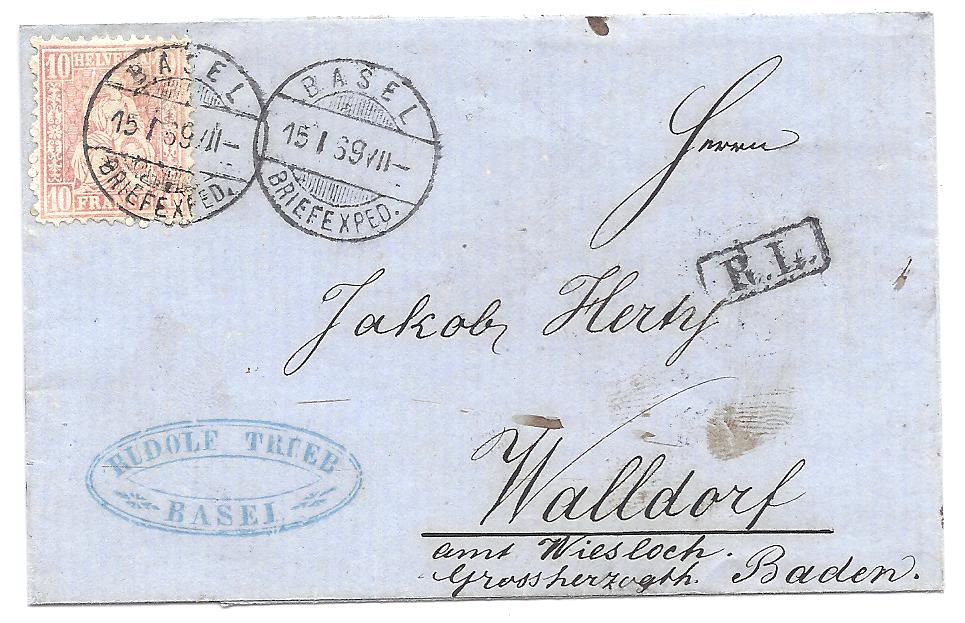 10 HELVETIA
10 FRA
BASEL
15 I 69 VII-
BRIEFEXPED.
BASEL
15 I 69 VII-
BRIEFEXPED.
Herrn
R.L.
Jakob Herty
RUDOLF TRUEB
BASEL
Walldorf
amt Wiesloch.
Grossherzogth. Baden.